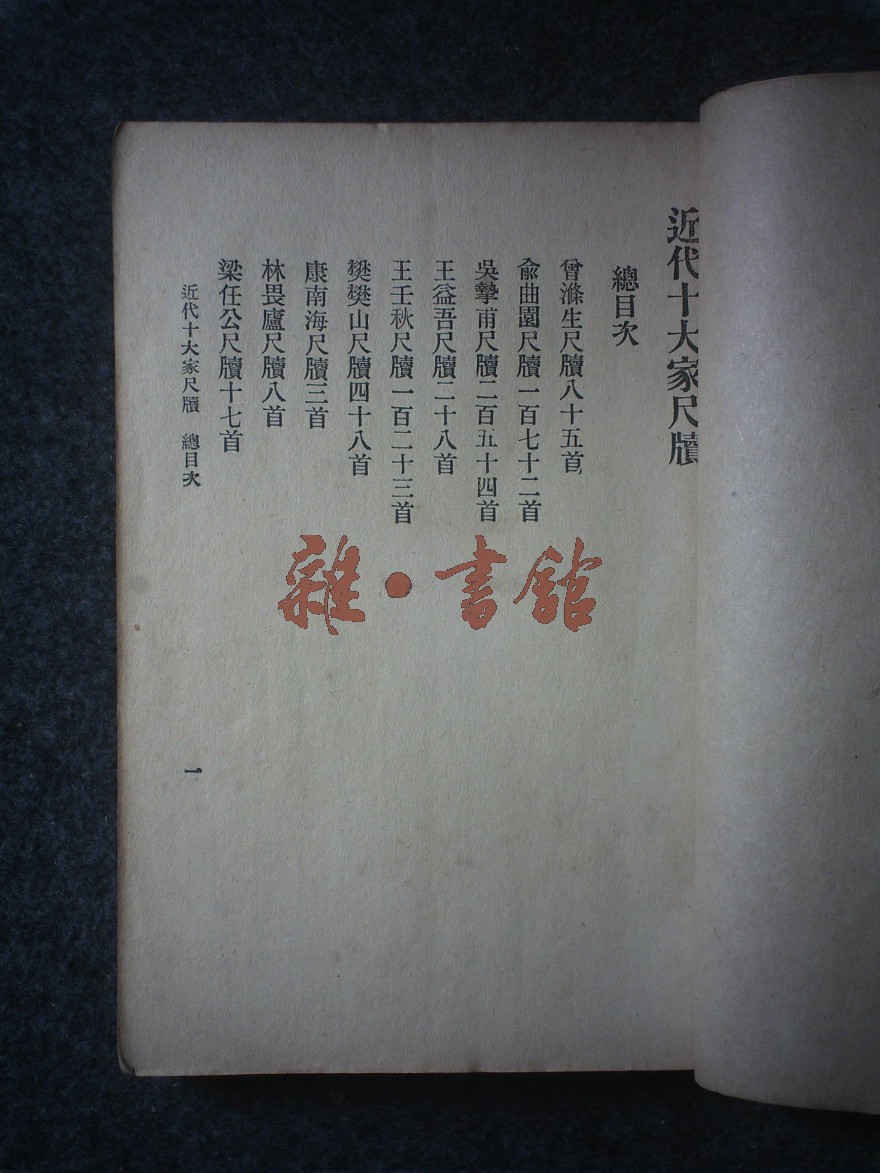 近代十大家尺牘
總目次
曾滌生尺牘八十五首
兪曲園尺牘一百七十二首
吳摯甫尺牘二百五十四首
王益吾尺牘二十八首
王壬秋尺牘一百二十三首
樊樊山尺牘四十八首
康南海尺牘三首
林畏廬尺牘八首
梁任公尺牘十七首
近代十大家尺牘 總目次
一
雜·書館